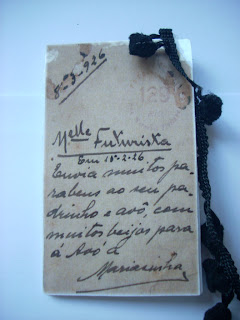 8-3-926
Melle Futurista
Em 18-2-26
Envia muitos pa-
rabens ao seu pa-
drinho e avô, com
muitos beijos para
á Avó a
Mariasinha